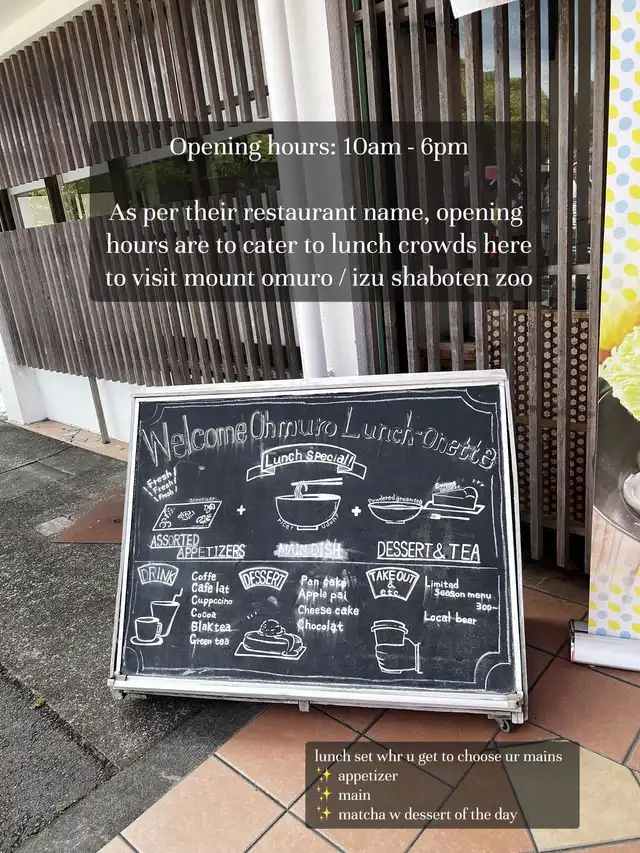 Opening hours: 10am - 6pm
As per their restaurant name, opening
hours are to cater to lunch crowds here
to visit mount omuro / izu shaboten zoo
Welcome Ohmuro Lunch-Onette
Lunch Special!
Fresh!
Fresh!
Fresh!
Appetizer
+
Rice? Udon?
+
Powdered green tea
ASSORTED
APPETIZERS
MAIN DISH
DESSERT & TEA
DRINK
Coffe
Cafe lat
Cuppccino
Cocoa
Blak tea
Green tea
DESSERT
Pan cake
Apple pai
Cheese cake
Chocolat
TAKE OUT
&
etc.
Limited
Season menu
300~
Local beer
lunch set whr u get to choose ur mains
✨ appetizer
✨ main
✨ matcha w dessert of the day